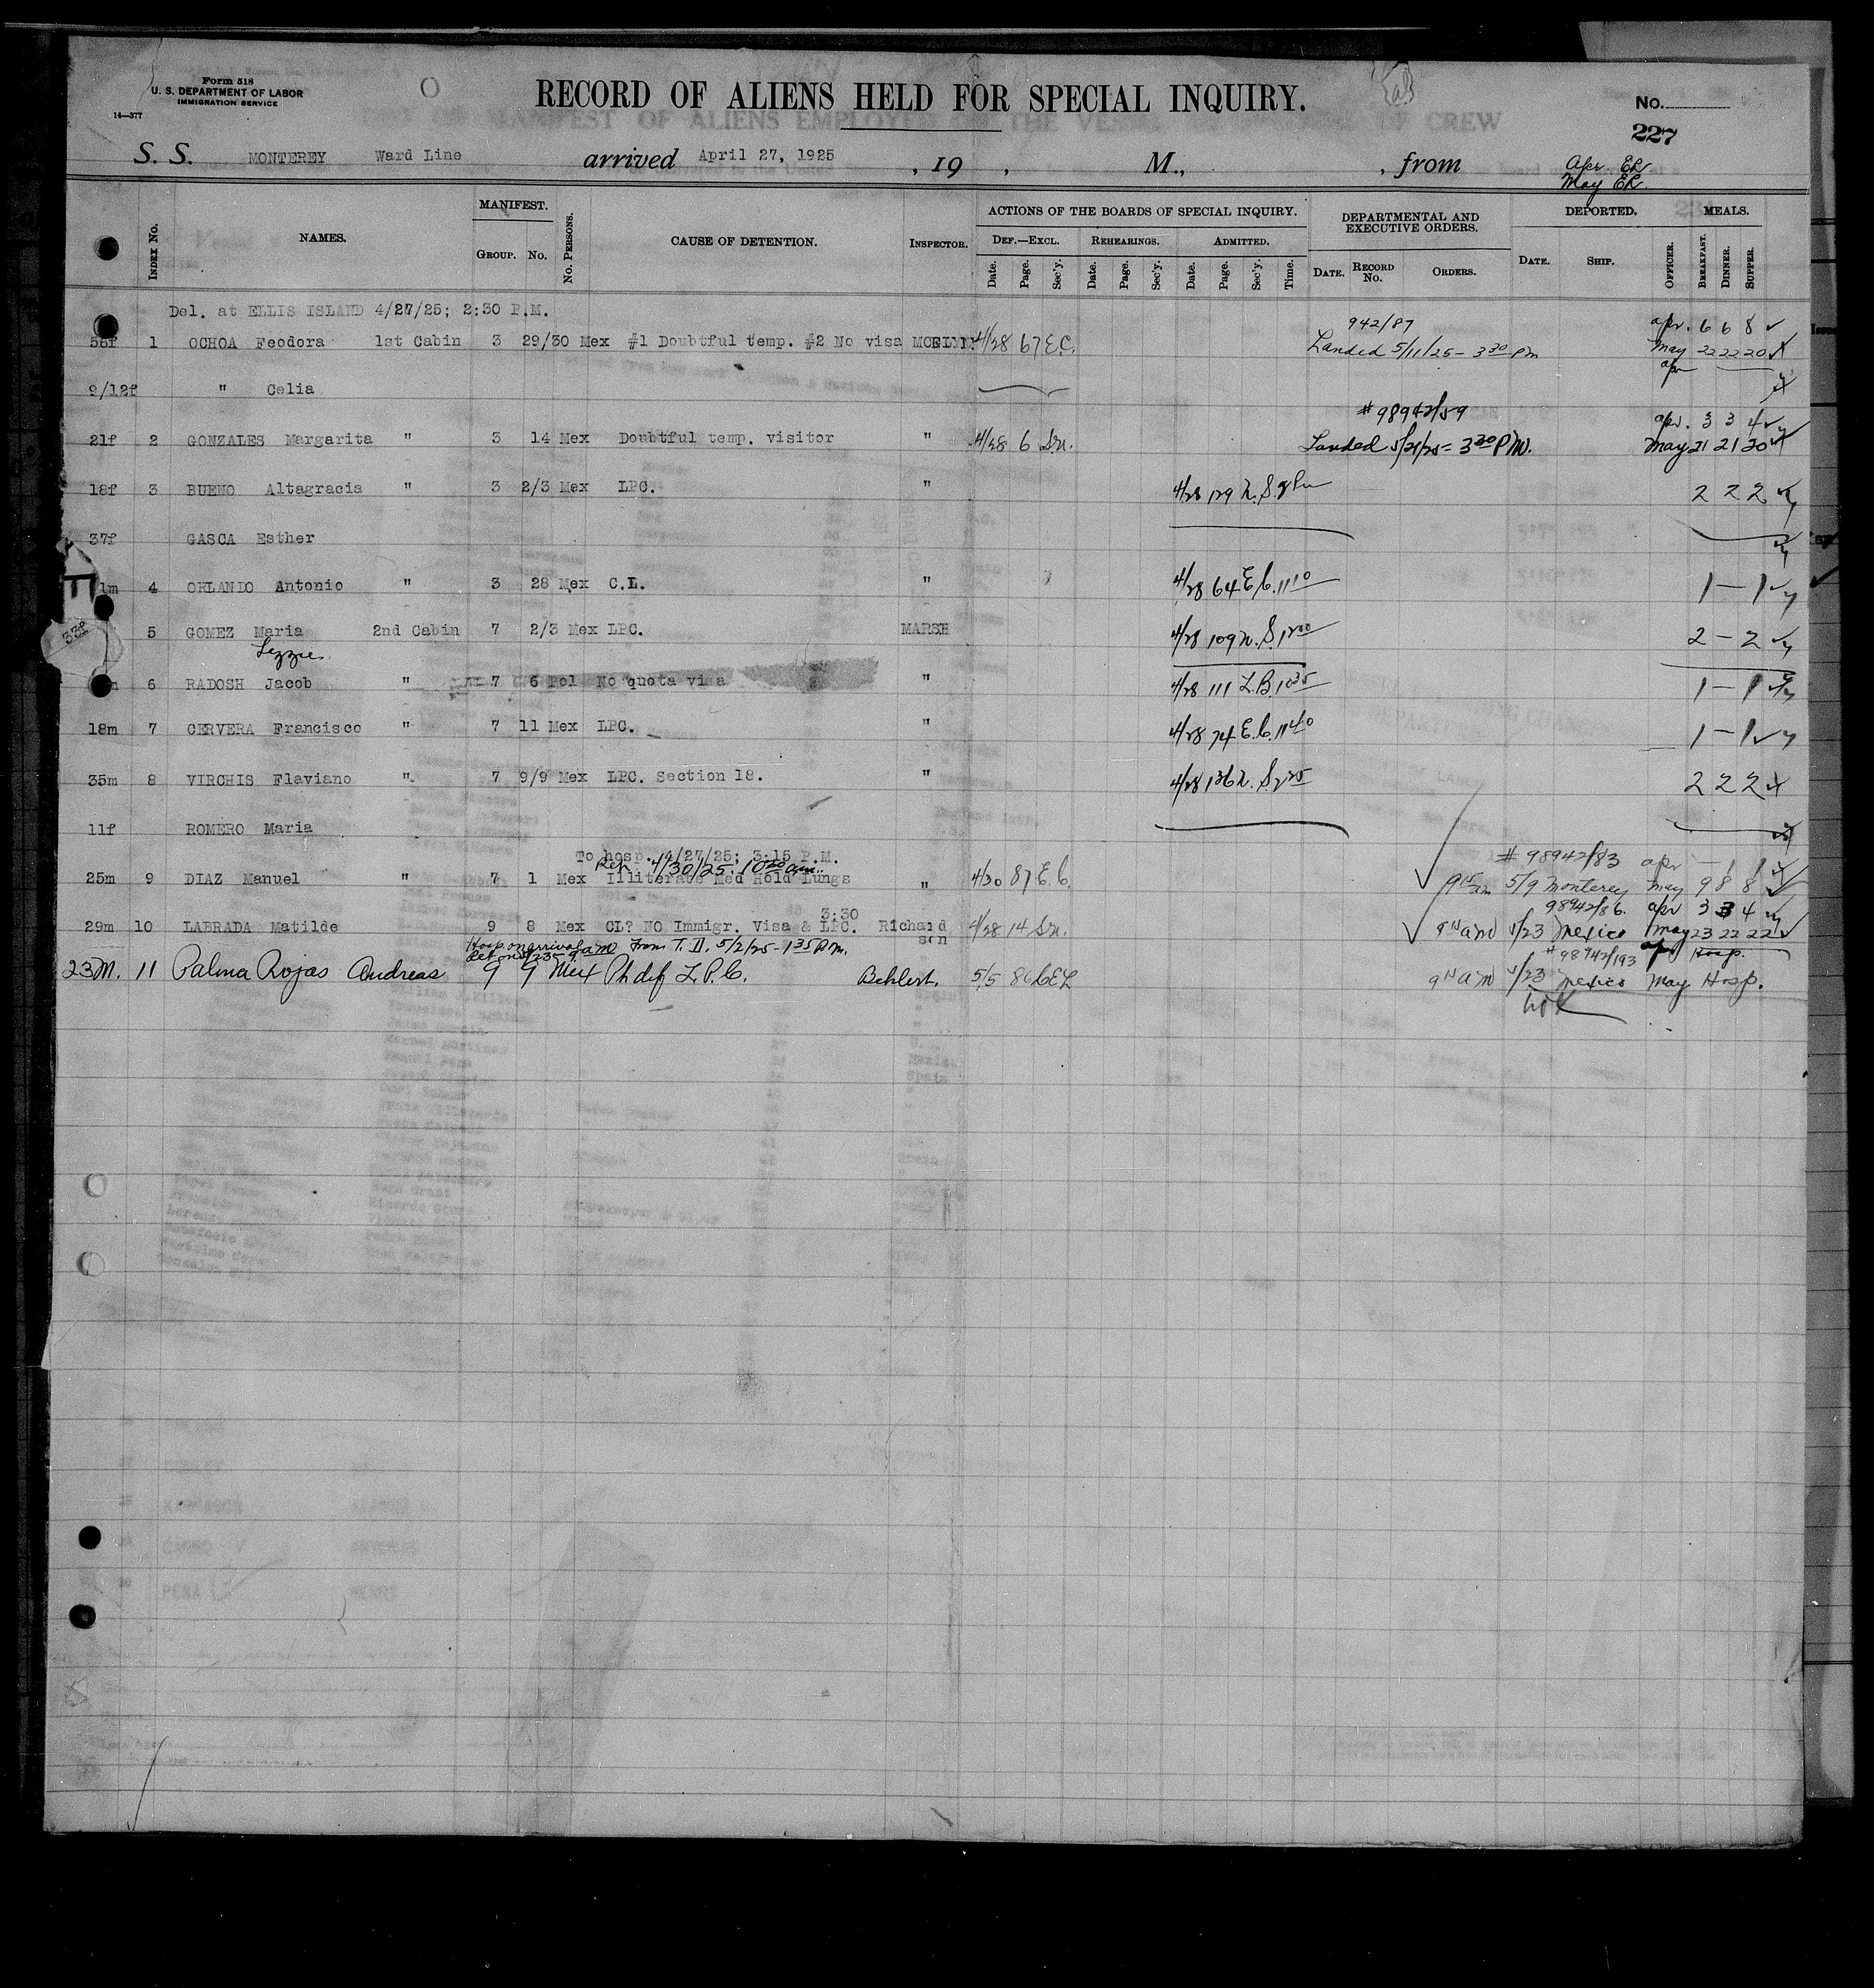 Form 518
U. S. DEPARTMENT OF LABOR
IMMIGRATION SERVICE
14—377
RECORD OF ALIENS HELD FOR SPECIAL INQUIRY.
No.
227
S. S. MONTEREY Ward Line arrived April 27, 1925 , 19 , M., , from
Apr. ER
May ER
INDEX No. NAMES. MANIFEST. GROUP. No. No. PERSONS. CAUSE OF DETENTION. INSPECTOR. ACTIONS OF THE BOARDS OF SPECIAL INQUIRY. DEF.—EXCL. Date. Page. Sec'y. REHEARINGS. Date. Page. Sec'y. ADMITTED. Date. Page. Sec'y. Time. DEPARTMENTAL AND EXECUTIVE ORDERS. DATE. RECORD No. ORDERS. DEPORTED. DATE. SHIP. OFFICER. MEALS. BREAKFAST. DINNER. SUPPER.
Del. at ELLIS ISLAND 4/27/25; 2:30 P.M.
942/87 apr. 6 6 8
1 OCHOA Feodora 1st Cabin 3 29/30 Mex #1 Doubtful temp. #2 No visa 4/28 67 E.C. Landed 5/11/25 - 3 30 PM May 22 22 20
apr
9/12f " Celia
#98942/59 apr. 3 3 4
21f 2 GONZALES Margarita " 3 14 Mex Doubtful temp. visitor " 4/28 6 Landed 5/21/25 - 3 30 PM. May 21 21 20
18f 3 BUENO Altagracia " 3 2/3 Mex LPC. " 4/28 129 2 2 2
37f GASCA Esther
4 ORLANDO Antonio " 3 28 Mex C.L. " 4/28 64 E.C. 11 10 1 — 1
33f 5 GOMEZ Maria 2nd Cabin 7 2/3 Mex LPC. MARSH 4/28 109 2 — 2
Lizzie
6 RADOSH Jacob " 7 6 Pol No quota visa " 4/28 111 L.B. 10 35 1 — 1
18m 7 CERVERA Francisco " 7 11 Mex LPC. " 4/28 74 E.C. 11 40 1 — 1
35m 8 VIRCHIS Flaviano " 7 9/9 Mex LPC. Section 18. " 4/28 136 2 2 2
11f ROMERO Maria
To hosp. 4/27/25; 3:15 P.M.
Ret. 4/30/25; 10 30 am. #98942/83 apr — 1 1
25m 9 DIAZ Manuel " 7 1 Mex Illiterate Med Hold Lungs " 4/30 87 E.C. 9 15 am 5/9 Monterey May 9 8 8
3:30 98942/86. apr 3 3 4
29m 10 LABRADA Matilde 9 8 Mex CL? NO Immigr. Visa & LPC. Richardson 4/28 14 9 15 am 5/23 Mexico May 23 22 22
Hosp on arrival From T. D. 5/2/25 - 1 35 P.M. #98942/193 apr Hosp.
23 M. 11 Palma Rojas Andreas 9 9 Mex Ph def L.P.C. Behlert. 5/5 86 9 15 am 5/23 Mexico May Hosp.